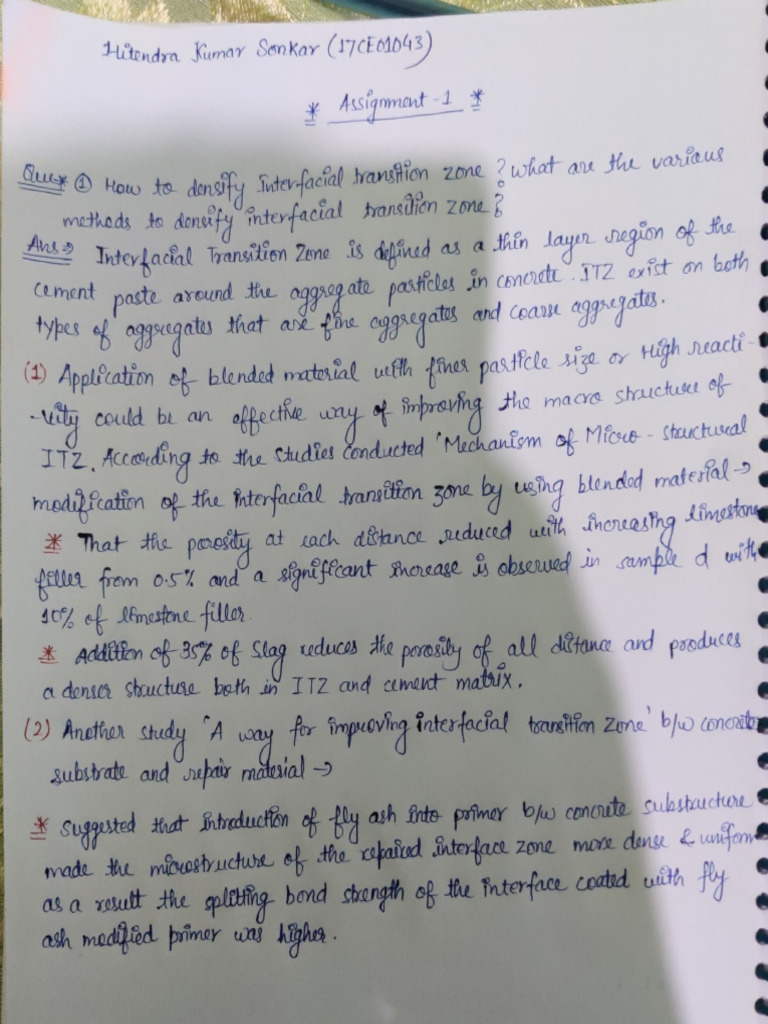 Hitendra Kumar Sonkar (17CE01043)
* Assignment-1 *
Que* ① How to densify interfacial transition zone? what are the various
methods to densify interfacial transition zone?
Ans → Interfacial Transition Zone is defined as a thin layer region of the
cement paste around the aggregate particles in concrete. ITZ exist on both
types of aggregates that are fine aggregates and coarse aggregates.
(1) Application of blended material with finer particle size or High reacti-
-vity could be an effective way of improving the macro structure of
ITZ. According to the studies conducted 'Mechanism of Micro-structural
modification of the interfacial transition zone by using blended material →
* That the porosity at each distance reduced with increasing limestone
filler from 0.5% and a significant increase is observed in sample d with
10% of limestone filler.
* Addition of 35% of Slag reduces the porosity of all distance and produces
a denser structure both in ITZ and cement matrix.
(2) Another study 'A way for improving interfacial transition zone' b/w concrete
substrate and repair material →
* Suggested that introduction of fly ash into primer b/w concrete substructure
made the microstructure of the repaired interface zone more dense & uniform
as a result the splitting bond strength of the interface coated with fly
ash modified primer was higher.